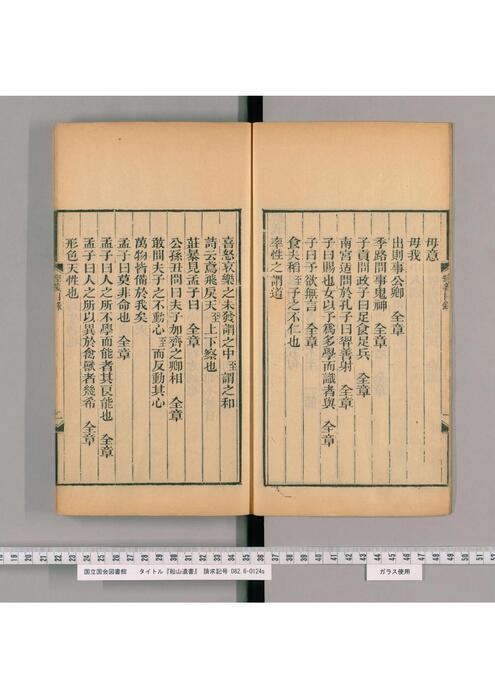 毋意
毋我
出則事公卿　全章
季路問事鬼神　全章
子貢問政子曰足食足兵　全章
南宮适問於孔子曰羿善射　全章
子曰賜也女以予爲多學而識者與　全章
子曰予欲無言　全章
食夫稻至予之不仁也
率性之謂道
喜怒哀樂之未發謂之中至謂之和
詩云鳶飛戾天至上下察也
莊暴見孟子曰　全章
公孫丑問曰夫子加齊之卿相　全章
敢問夫子之不動心至而反動其心
萬物皆備於我矣
孟子曰莫非命也　全章
孟子曰人之所不學而能者其良能也　全章
孟子曰人之所以異於禽獸者幾希　全章
形色天性也
国立国会図書館　タイトル『船山遺書』　請求記号 082.6-0124s
ガラス使用
14 15 16 17 18 19 20 21 22 23 24 25 26 27 28 29 30 31 32 33 34 35 36 37 38 39 40 41 42 43 44 45 46 47 48 49 50 51